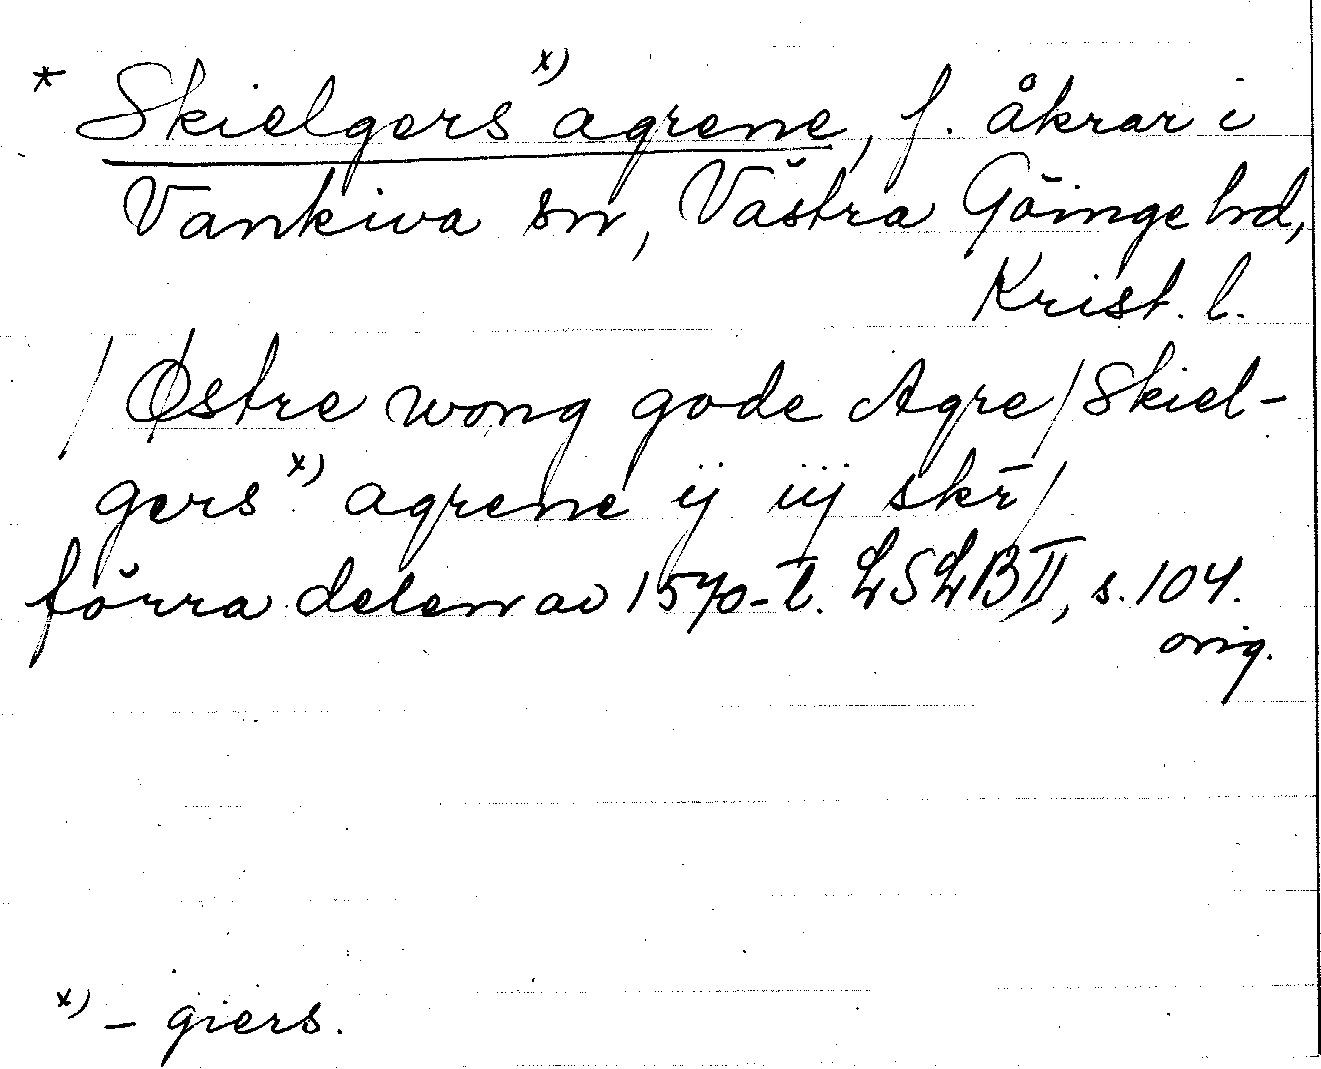 * Skielgers x) agrene, f. åkrar i
Vankiva sn, Västra Göinge hd,
Krist. l.
/ Østre wong gode Agre / Skiel-
gers x) agrene ij iij skr̄ /
förra delen av 1570-t. LSLB II, s. 104.
orig.
x) – giers.